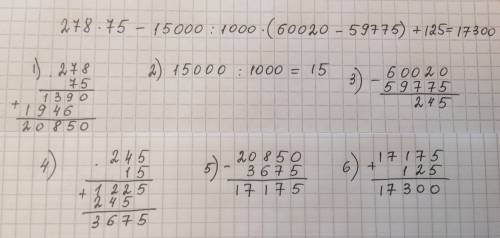 278 · 75 − 15000 : 1000 · (60020 − 59775) + 125 = 17300
1) · 278
75
1390
+ 1946
20850
2) 15000 : 1000 = 15
3) − 60020
59775
245
4) · 245
15
+ 1225
245
3675
5) − 20850
3675
17175
6) + 17175
125
17300